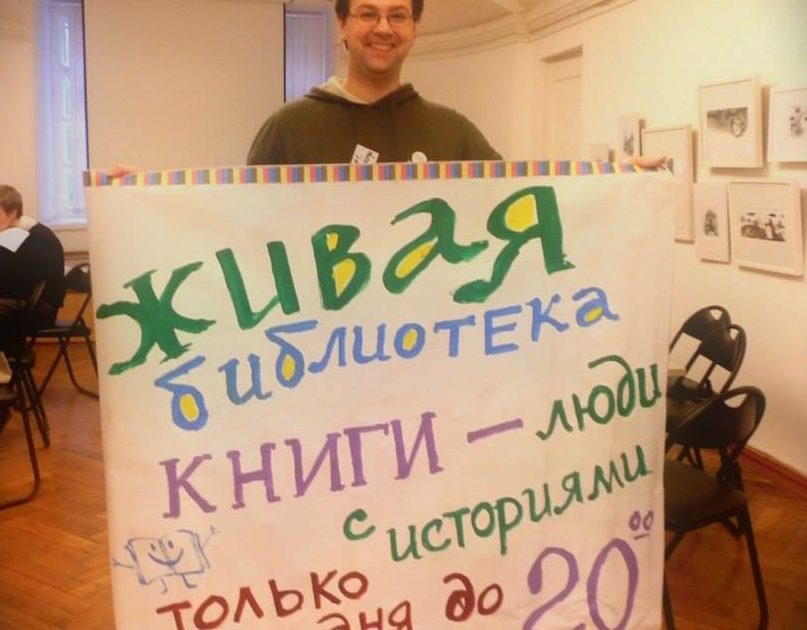 живая
библиотека
книги — люди
с историями
только
до 20⁰⁰